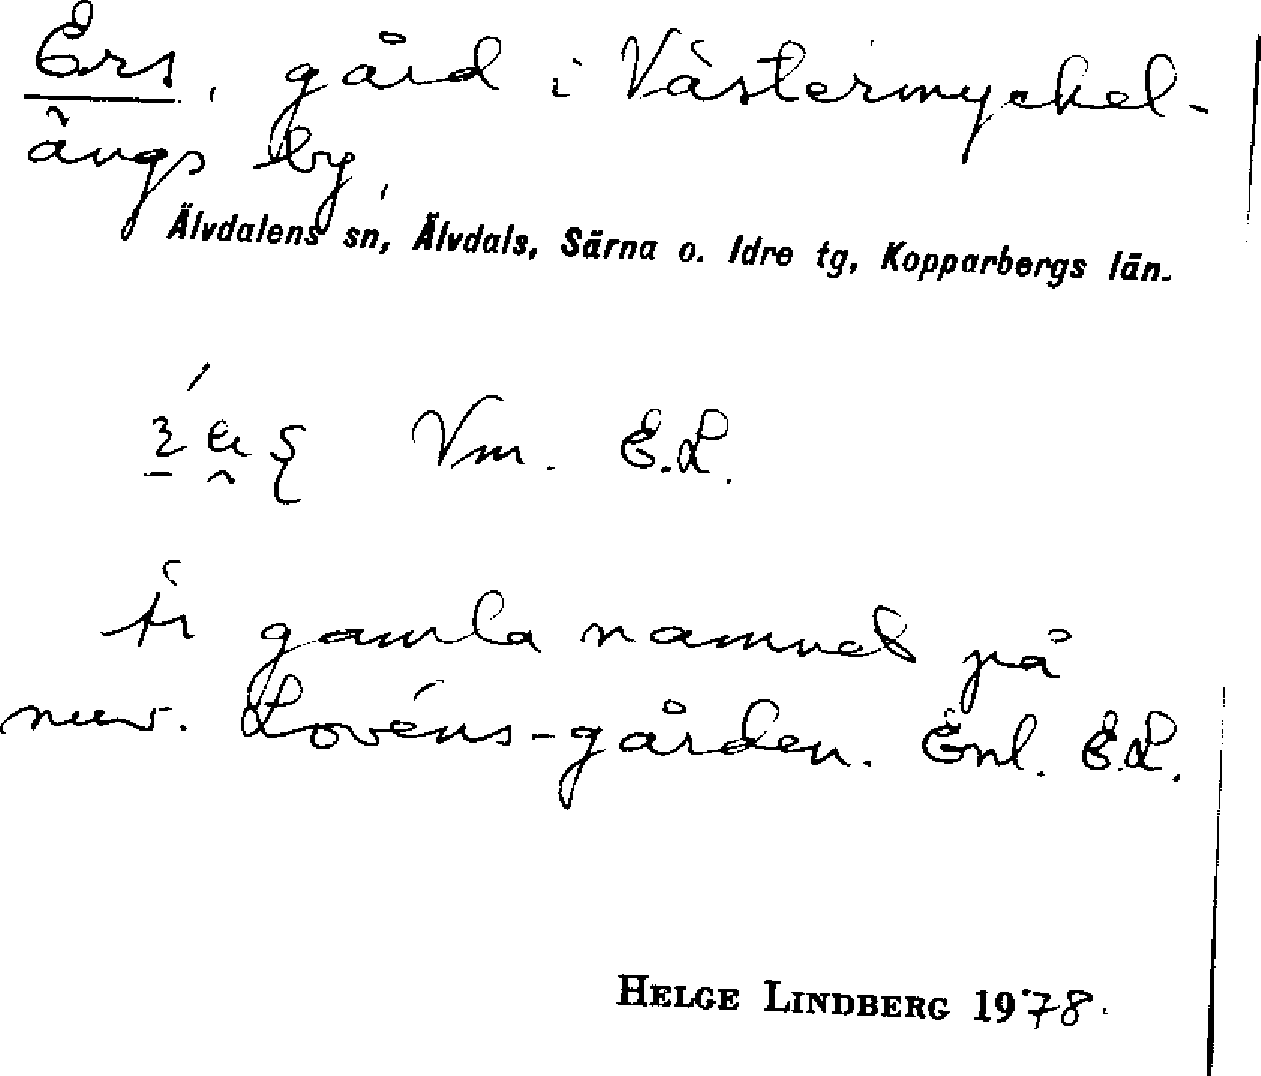 Ers, gård i Västermyckel-
ängs by,
Älvdalens sn, Älvdals, Särna o. Idre tg, Kopparbergs län.
Vm. E.L.
Är gamla namnet på
nuv. Lovéns-gården. Enl. E.L.
HELGE LINDBERG 1978.